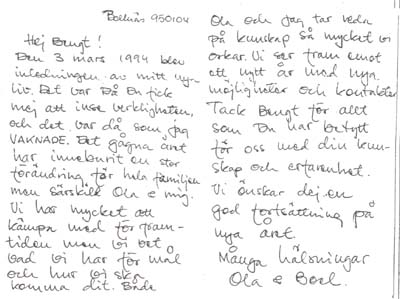 Bollnäs 950104
Hej Bengt!
Den 3 mars 1994 blev
inledningen av mitt nya
liv. Det var då Du fick
mej att inse verkligheten,
och det var då som jag
VAKNADE. Det gågna året
har inneburit en stor
förändring för hela familjen
men särskilt Ola & mig.
Vi har mycket att
kämpa med för fram-
tiden men vi vet
vad vi har för mål
och hur vi ska
komma dit. Både
Ola och jag tar reda
på kunskap så mycket vi
orkar. Vi ser fram emot
ett nytt år med nya
möjligheter och kontakter
Tack Bengt för allt
som Du har betytt
för oss med din kun-
skap och erfarenhet.
Vi önskar dej en
god fortsättning på
nya året.
Många hälsningar
Ola &